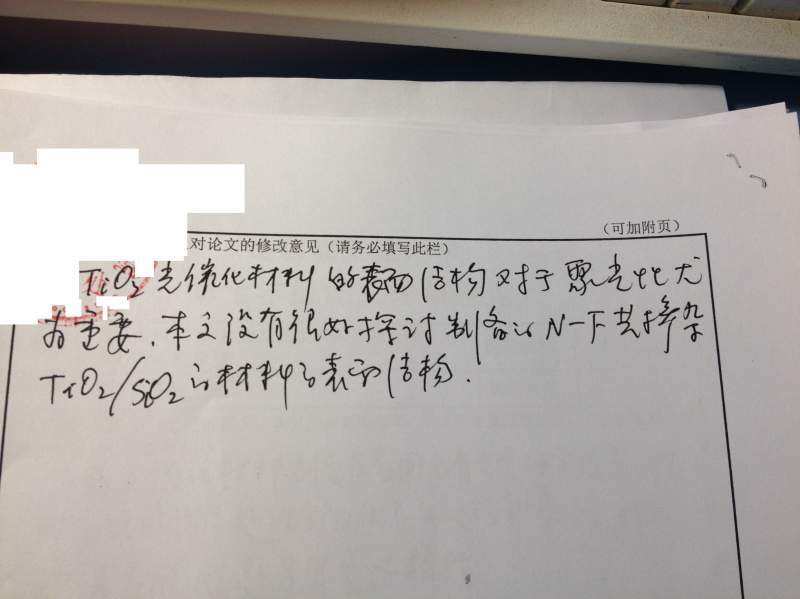 (可加附页)
对论文的修改意见(请务必填写此栏)
TiO2光催化材料的表面结构对于光尤
为重要.本文没有很好探讨制备的N-F共掺杂
TiO2/SiO2的材料的表面结构.